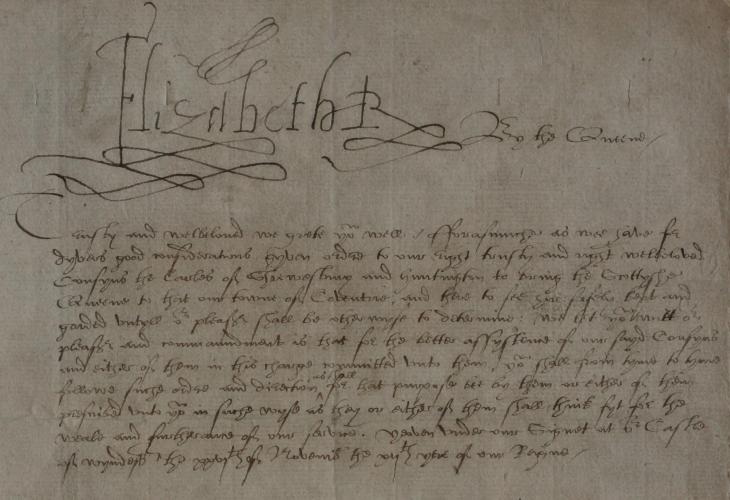 Elizabeth R
By the Queene
Trusty and welbeloved we grete yow well. Fforasmuche as wee have for
dyvers good considerations gyven order to our right trusty and right welbeloved
Cousyns the Earles of Shrewesbury and Huntingdon to bring the Scottyshe
Queene to that our towne of Coventre, and there to see hir safely kept and
garded untyll or pleasr shall be otherwyse to determine: we let yow witt or
pleasr and commaundment is that for the better assystence of our sayd Cousyns
and either of them in this charge committed unto them, yow shall from tyme to tyme
followe suche order and direction as for that purpose be by them or either of them
prescribed unto yow in suche wyse as they or either of them shall think fyt for the
weale and furtherance of our service. Yeven under our Signet at or Castle
of wyndesor the xxvith of Novembr the xiith yere of our Reigne